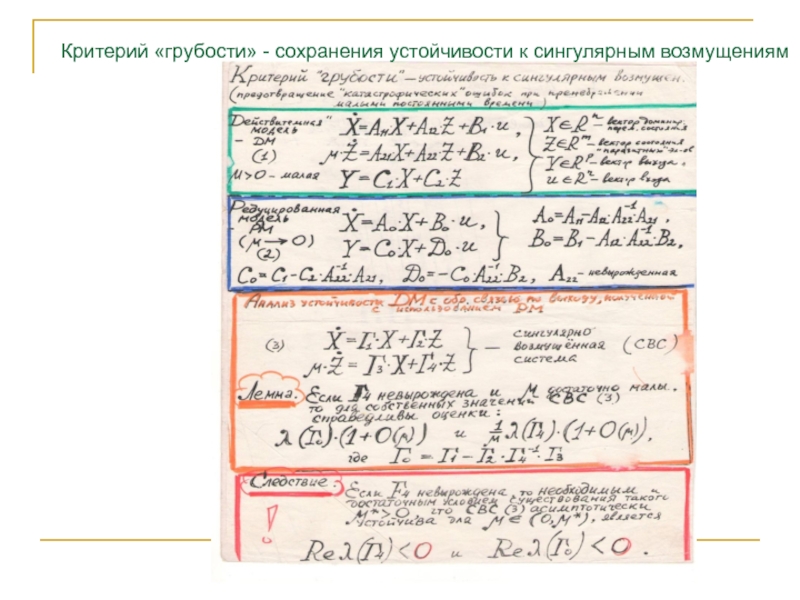 Критерий «грубости» - сохранения устойчивости к сингулярным возмущениям
Критерий "грубости" – устойчивость к сингулярным возмущен.
(предотвращение "катастрофических" ошибок при пренебрежении
малыми постоянными времени)
Действительная
модель
– DM
(1)
μ>0 – малая
Ẋ=A₁₁X+A₁₂Z+B₁·u,
μ·Ż=A₂₁X+A₂₂Z+B₂·u,
Y=C₁·X+C₂·Z
X∈Rⁿ – вектор
Z∈Rᵐ – вектор состояния
Y∈Rᵖ – вектор выхода.
u∈Rʳ – вектор входа
Редуцированная
модель
– РМ
(μ→0)
(2)
Ẋ=A₀·X+B₀·u,
Y=C₀·X+D₀·u
A₀=A₁₁-A₁₂·A₂₂⁻¹·A₂₁,
B₀=B₁-A₁₂·A₂₂⁻¹·B₂,
C₀=C₁-C₂·A₂₂⁻¹·A₂₁, D₀=-C₀A₂₂⁻¹·B₂, A₂₂ – невырожденная
Анализ устойчивости DM с обр. связью по выходу, полученной
с использованием РМ
(3)
Ẋ=Γ₁·X+Γ₂·Z
μ·Ż=Γ₃·X+Γ₄·Z
– сингулярно
возмущённая (СВС)
система
Лемма. Если Γ₄ невырождена и μ достаточно малы.
то для собственных значений СВС (3)
справедливы оценки:
λ(Γ₀)·(1+O(μ)) и 1/μ λ(Γ₄)·(1+O(μ)),
где Γ₀=Γ₁-Γ₂·Γ₄⁻¹·Γ₃
Следствие.
!
Если Γ₄ невырождена, то необходимым и
достаточным условием существования такого
μ*>0, что СВС (3) асимптотически
устойчива для μ∈(0,μ*), является
Reλ(Γ₄)<0 и Reλ(Γ₀)<0.